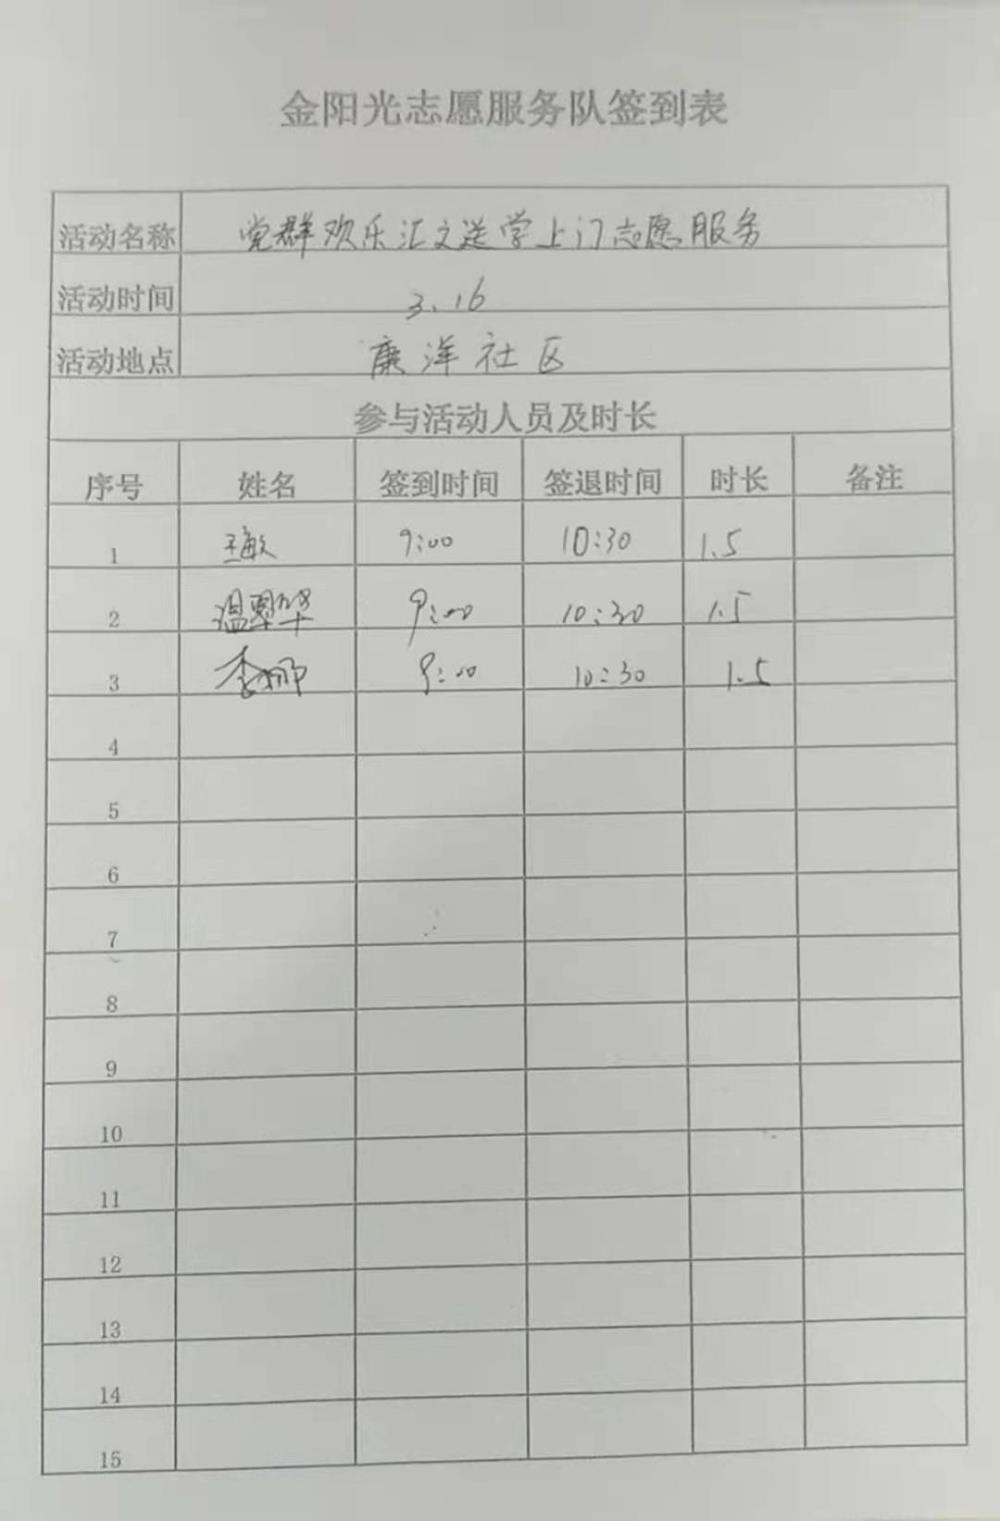 金阳光志愿服务队签到表
活动名称 党群欢乐汇之送学上门志愿服务
活动时间 3.16
活动地点 康洋社区
参与活动人员及时长
序号 姓名 签到时间 签退时间 时长 备注
1 王敏 9:00 10:30 1.5
2 温翠华 9:00 10:30 1.5
3 李娜 9:00 10:30 1.5
4
5
6
7
8
9
10
11
12
13
14
15